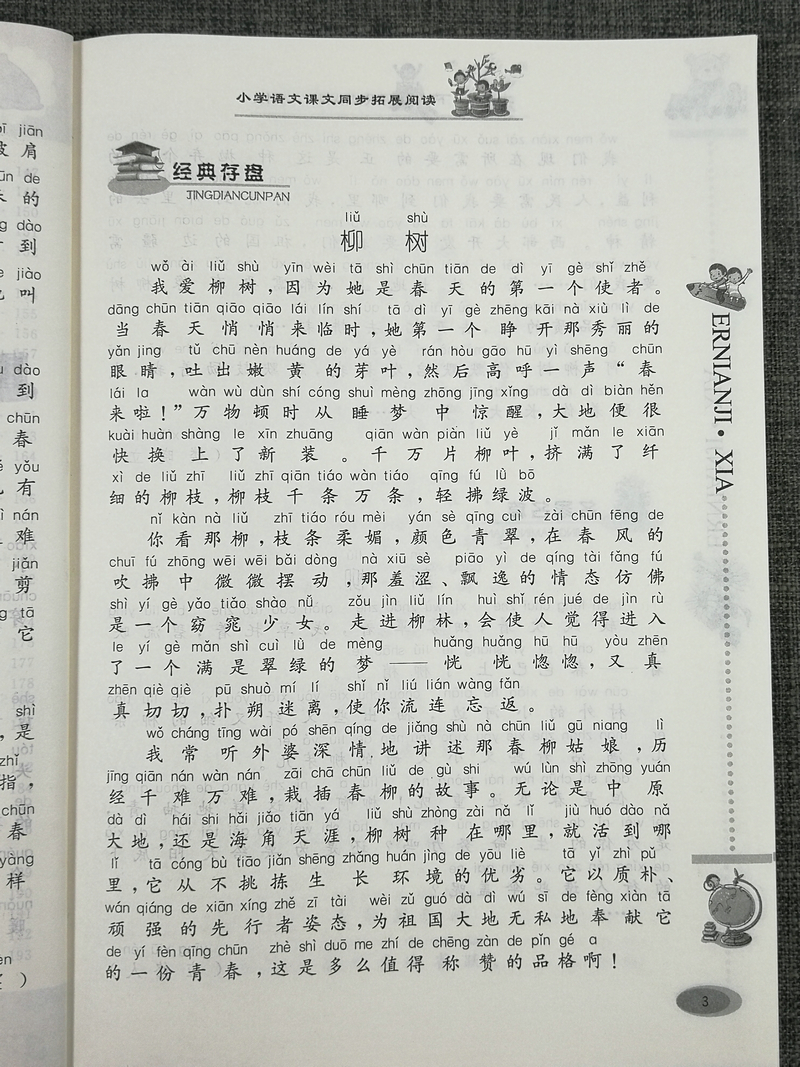 小学语文课文同步拓展阅读
经典存盘
JINGDIANCUNPAN
liǔ shù
柳 树
wǒ ài liǔ shù yīn wèi tā shì chūn tiān de dì yī gè shǐ zhě
我爱柳树，因为她是春天的第一个使者。
dāng chūn tiān qiāo qiāo lái lín shí tā dì yī gè zhēng kāi nà xiù lì de
当春天悄悄来临时，她第一个睁开那秀丽的
yǎn jing tǔ chū nèn huáng de yá yè rán hòu gāo hū yì shēng chūn
眼睛，吐出嫩黄的芽叶，然后高呼一声“春
lái la wàn wù dùn shí cóng shuì mèng zhōng jīng xǐng dà dì biàn hěn
来啦！”万物顿时从睡梦中惊醒，大地便很
kuài huàn shàng le xīn zhuāng qiān wàn piàn liǔ yè jǐ mǎn le xiān
快换上了新装。千万片柳叶，挤满了纤
xì de liǔ zhī liǔ zhī qiān tiáo wàn tiáo qīng fú lǜ bō
细的柳枝，柳枝千条万条，轻拂绿波。
nǐ kàn nà liǔ zhī tiáo róu mèi yán sè qīng cuì zài chūn fēng de
你看那柳，枝条柔媚，颜色青翠，在春风的
chuī fú zhōng wēi wēi bǎi dòng nà xiū sè piāo yì de qíng tài fǎng fú
吹拂中微微摆动，那羞涩、飘逸的情态仿佛
shì yí gè yǎo tiǎo shào nǚ zǒu jìn liǔ lín huì shǐ rén jué de jìn rù
是一个窈窕少女。走进柳林，会使人觉得进入
le yí gè mǎn shì cuì lǜ de mèng huǎng huǎng hū hū yòu zhēn
了一个满是翠绿的梦——恍恍惚惚，又真
zhēn qiè qiè pū shuò mí lí shǐ nǐ liú lián wàng fǎn
真切切，扑朔迷离，使你流连忘返。
wǒ cháng tīng wài pó shēn qíng de jiǎng shù nà chūn liǔ gū niang lì
我常听外婆深情地讲述那春柳姑娘，历
jīng qiān nán wàn nán zāi chā chūn liǔ de gù shi wú lùn shì zhōng yuán
经千难万难，栽插春柳的故事。无论是中原
dà dì hái shi hǎi jiǎo tiān yá liǔ shù zhòng zài nǎ lǐ jiù huó dào nǎ
大地，还是海角天涯，柳树种在哪里，就活到哪
lǐ tā cóng bù tiāo jiǎn shēng zhǎng huán jìng de yōu liè tā yǐ zhì pǔ
里，它从不挑拣生长环境的优劣。它以质朴、
wán qiáng de xiān xíng zhě zī tài wèi zǔ guó dà dì wú sī de fèng xiàn tā
顽强的先行者姿态，为祖国大地无私地奉献它
de yí fèn qīng chūn zhè shì duō me zhí de chēng zàn de pǐn gé a
的一份青春，这是多么值得称赞的品格啊！
ERNIANJI·XIA
3